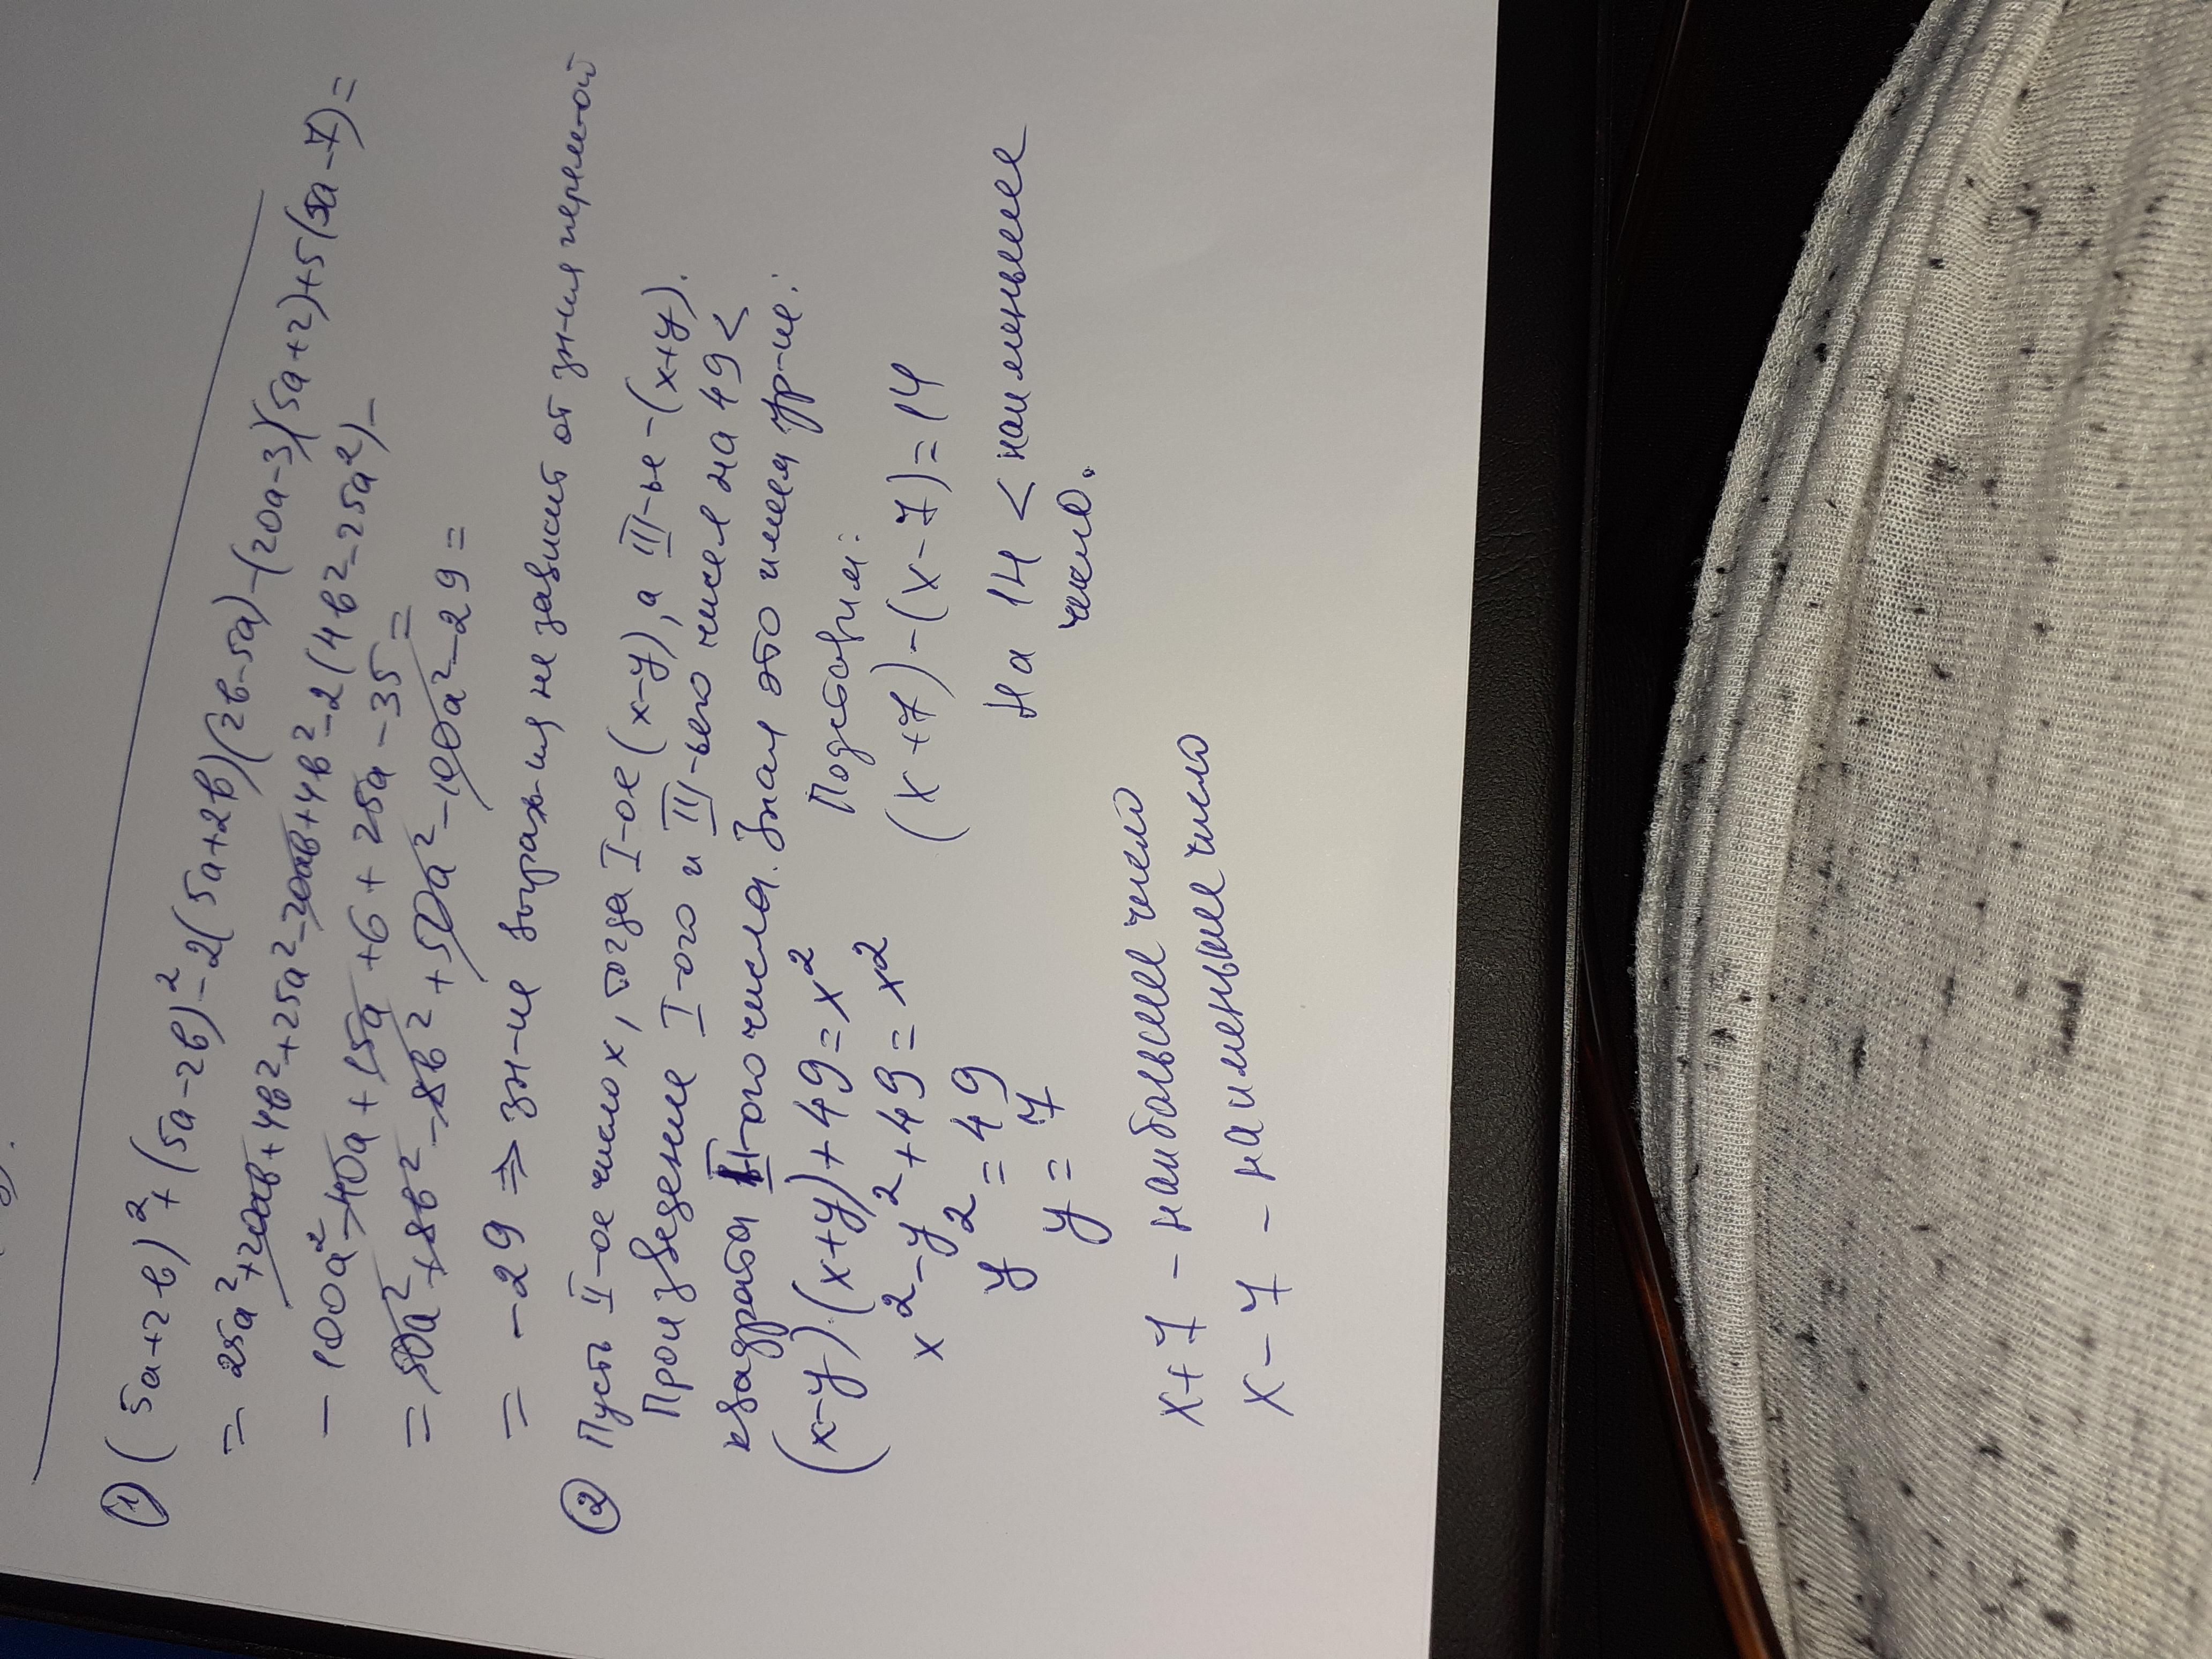 ① (5a+2b)²+(5a-2b)²-2(5a+2b)(2b-5a)-(20a-3)(5a+2)+5(5a-7)=
= 25a²+20ab+4b²+25a²-20ab+4b²-2(4b²-25a²)-
- 100a²-40a+15a+6+25a-35=
= 50a²+8b²-8b²+50a²-100a²-29=
= -29 ⇒ зн-ие выраж-ия не зависит от зн-ия перем-ой
② Пусть II-ое число x, тогда I-ое (x-y), а III-ье-(x+y).
Произведение I-ого и III-ьего чисел на 49 <
квадрата II-ого числа. Зная это имеем ур-ие:
(x-y)(x+y)+49=x²
x²-y²+49=x²
y²=49
y=7
Подставим:
(x+7)-(x-7)=14
На 14 < наименьшее
число.
x+7-наибольшее число
x-7-наименьшее число